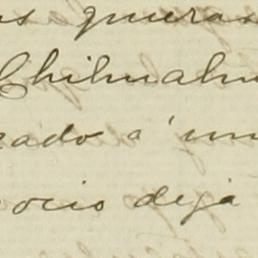 as quieras
Chilmahu
rado á un
ocio deja